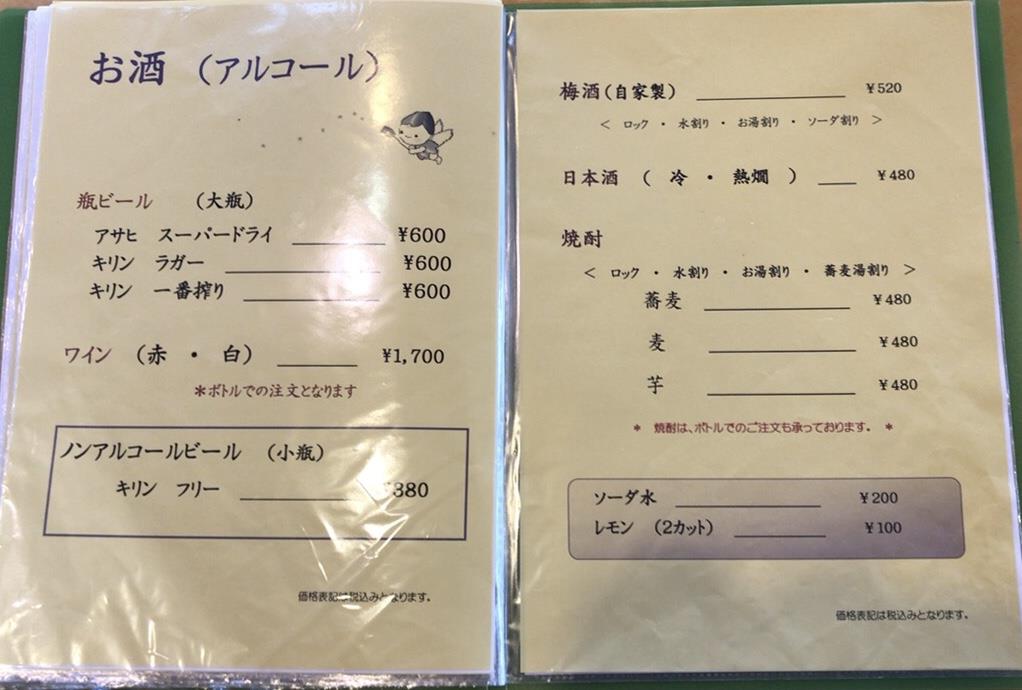 お酒 （アルコール）
瓶ビール （大瓶）
アサヒ スーパードライ ¥600
キリン ラガー ¥600
キリン 一番搾り ¥600
ワイン （赤 ・ 白） ¥1,700
＊ボトルでの注文となります
ノンアルコールビール （小瓶）
キリン フリー ¥380
価格表記は税込みとなります。
梅酒（自家製） ¥520
＜ ロック ・ 水割り ・ お湯割り ・ ソーダ割り ＞
日本酒 （ 冷 ・ 熱燗 ） ¥480
焼酎
＜ ロック ・ 水割り ・ お湯割り ・ 蕎麦湯割り ＞
蕎麦 ¥480
麦 ¥480
芋 ¥480
＊ 焼酎は、ボトルでのご注文も承っております。 ＊
ソーダ水 ¥200
レモン （2カット） ¥100
価格表記は税込みとなります。